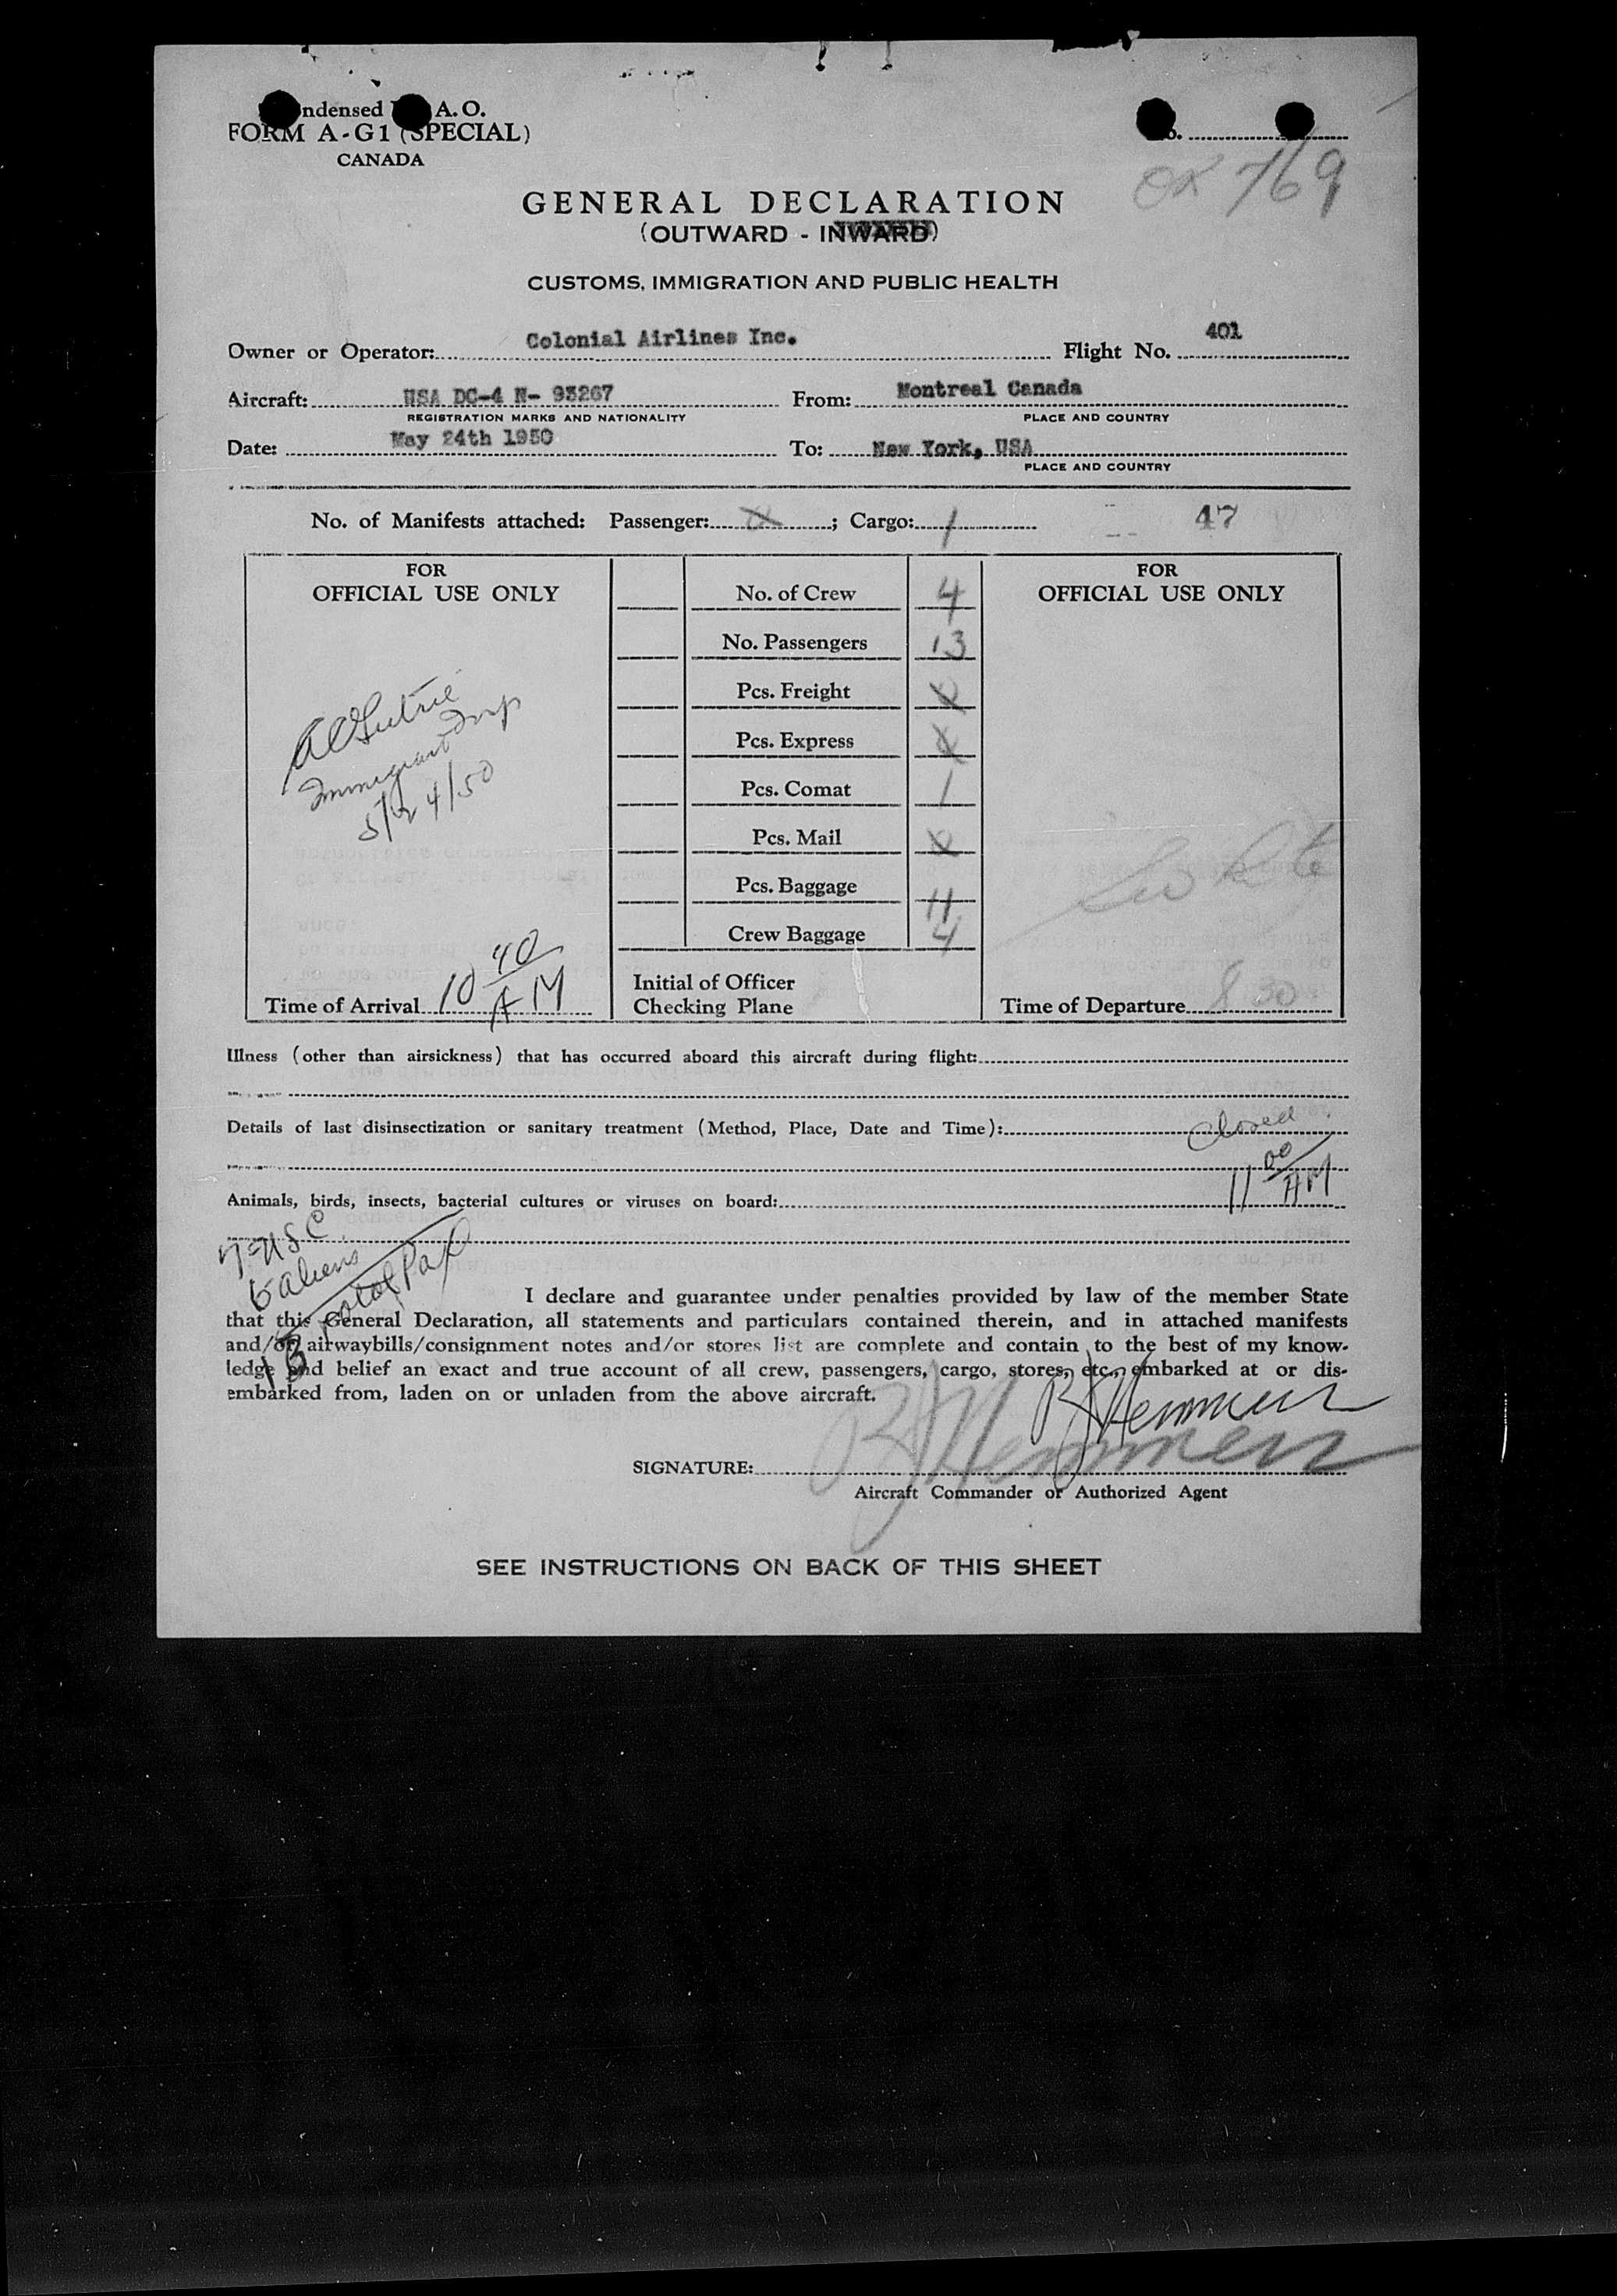 ndensed A. O.
FORM A-G1 (SPECIAL)
CANADA
OK 769
GENERAL DECLARATION
(OUTWARD - INWARD)
CUSTOMS, IMMIGRATION AND PUBLIC HEALTH
Owner or Operator: Colonial Airlines Inc. Flight No. 401
Aircraft: USA DC-4 N- 93267 From: Montreal Canada
REGISTRATION MARKS AND NATIONALITY PLACE AND COUNTRY
Date: May 24th 1950 To: New York, USA
PLACE AND COUNTRY
No. of Manifests attached: Passenger: ; Cargo: 1 47
FOR
OFFICIAL USE ONLY
Immigrant Insp
5/24/50
Time of Arrival 10 40 AM
No. of Crew 4
No. Passengers 13
Pcs. Freight
Pcs. Express
Pcs. Comat 1
Pcs. Mail
Pcs. Baggage 11
Crew Baggage 4
Initial of Officer
Checking Plane
FOR
OFFICIAL USE ONLY
Time of Departure 8 30
Illness (other than airsickness) that has occurred aboard this aircraft during flight:
Details of last disinsectization or sanitary treatment (Method, Place, Date and Time):
Closed
11 00 AM
Animals, birds, insects, bacterial cultures or viruses on board:
7-USC
6 aliens
13 total Pax
I declare and guarantee under penalties provided by law of the member State
that this General Declaration, all statements and particulars contained therein, and in attached manifests
and/or airwaybills/consignment notes and/or stores list are complete and contain to the best of my know-
ledge and belief an exact and true account of all crew, passengers, cargo, stores, etc., embarked at or dis-
embarked from, laden on or unladen from the above aircraft.
SIGNATURE:
Aircraft Commander or Authorized Agent
SEE INSTRUCTIONS ON BACK OF THIS SHEET